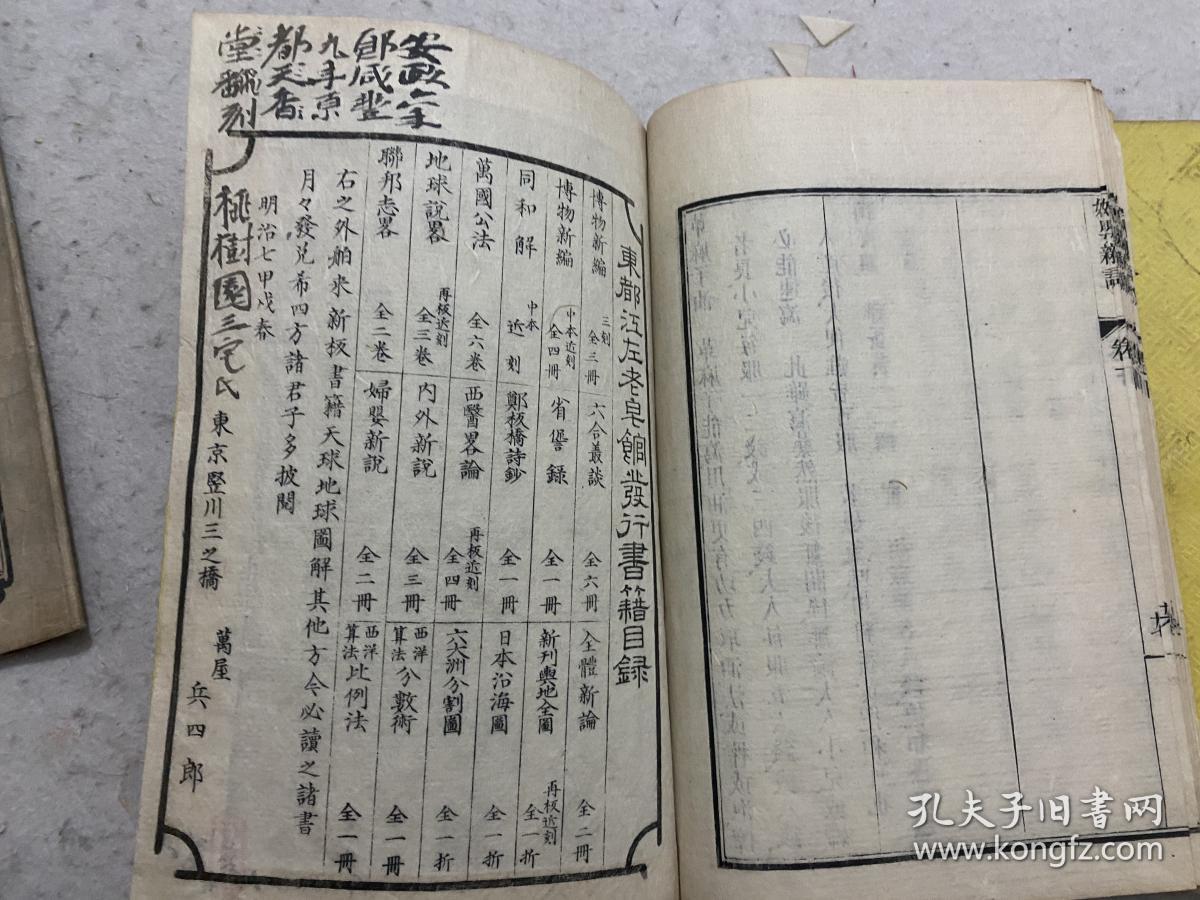 安政六年
即咸豐
九年原
都天香
堂翻刻
東都江左老皂館發行書籍目録
博物新編 三刻 全三冊
六合叢談 全六冊
全體新論 全二冊
博物新編 中本近刻 全四冊
省諐録 全一冊
新刊輿地全圖 再板近刻 全一折
同和解 中本 近刻
鄭板橋詩鈔 全一冊
日本沿海圖 全一折
萬國公法 全六卷
西醫畧論 再板近刻 全四冊
六大洲分割圖 全一折
地球說畧 再板近刻 全三卷
内外新說 全三冊
西洋算法分數術 全一冊
聯邦志畧 全二卷
婦嬰新說 全二冊
西洋算法比例法 全一冊
右之外舶来新板書籍天球地球圖解其他方今必讀之諸書
月々發兌希四方諸君子多披閲
明治七甲戌春
桃樹園三宅氏
東京竪川三之橋
萬屋 兵四郎
孔夫子旧书网
www.kongfz.com